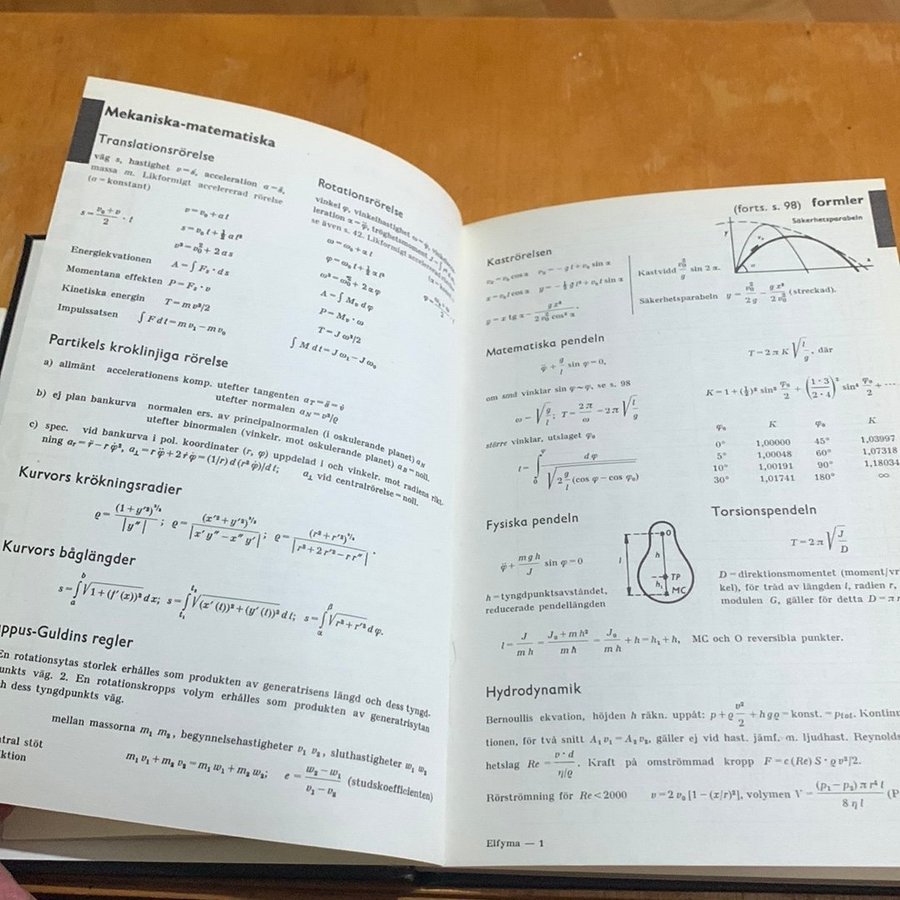 Mekaniska-matematiska
Translationsrörelse
väg s, hastighet v=ṡ, acceleration a=s̈,
massa m. Likformigt accelererad rörelse
(a=konstant)
s=(v₀+v)/2 · t
v=v₀+at
s=v₀t+½at²
v²=v₀²+2as
Energiekvationen A=∫Fₛ·ds
Momentana effekten P=Fₛ·v
Kinetiska energin T=mv²/2
Impulssatsen ∫Fdt=mv₁−mv₀
Rotationsrörelse
vinkel φ, vinkelhastighet ω=φ̇,
leration α=φ̈, tröghetsmoment J=
se även s. 42. Likformigt accelererad
ω=ω₀+αt
φ=ω₀t+½αt²
ω²=ω₀²+2αφ
A=∫Mᵥdφ
P=Mᵥ·ω
T=Jω²/2
∫Mdt=Jω₁−Jω₀
Partikels kroklinjiga rörelse
a) allmänt accelerationens komp. utefter tangenten a_T=s̈=v̇
utefter normalen a_N=v²/ϱ
b) ej plan bankurva normalen ers. av principalnormalen (i oskulerande planet) a_N
utefter binormalen (vinkelr. mot oskulerande planet) a_B=noll.
c) spec. vid bankurva i pol. koordinater (r, φ) uppdelad i och vinkelr. mot radiens rikt-
ning a_r=r̈−rφ̇², a_⊥=rφ̈+2ṙφ̇=(1/r)d(r²φ̇)/dt; a_⊥ vid centralrörelse=noll.
Kurvors krökningsradier
ϱ=(1+y′²)^(3/2)/|y″|; ϱ=(x′²+y′²)^(3/2)/|x′y″−x″y′|; ϱ=(r²+r′²)^(3/2)/|r²+2r′²−rr″|.
Kurvors båglängder
s=∫ₐᵇ√(1+(f′(x))²)dx; s=∫√((x′(t))²+(y′(t))²)dt; s=∫√(r²+r′²)dφ.
ppus-Guldins regler
En rotationsytas storlek erhålles som produkten av generatrisens längd och dess tyngd-
unkts väg. 2. En rotationskropps volym erhålles som produkten av generatrisytan
h dess tyngdpunkts väg.
mellan massorna m₁ m₂, begynnelsehastigheter v₁ v₂, sluthastigheter w₁ w₂
tral stöt
iktion
m₁v₁+m₂v₂=m₁w₁+m₂w₂; e=(w₂−w₁)/(v₁−v₂) (studskoefficienten)
(forts. s. 98) formler
Säkerhetsparabeln
Kaströrelsen
vₓ=v₀cos α vᵧ=−gt+v₀sin α
x=v₀tcos α y=−½gt²+v₀tsin α
y=x tg α−gx²/(2v₀²cos²α)
Kastvidd v₀²/g sin 2α.
Säkerhetsparabeln y=v₀²/2g−gx²/2v₀² (streckad).
Matematiska pendeln
φ̈+g/l sin φ=0,
om små vinklar sin φ~φ, se s. 98
ω=√(g/l); T=2π/ω=2π√(l/g)
större vinklar, utslaget φ₀
t=∫₀^φ dφ/√(2g/l(cos φ−cos φ₀))
T=2πK√(l/g), där
K=1+(½)²sin²φ₀/2+(1·3/2·4)²sin⁴φ₀/2+⋯
φ₀ K φ₀ K
0° 1,00000 45° 1,03997
5° 1,00048 60° 1,07318
10° 1,00191 90° 1,18034
30° 1,01741 180° ∞
Fysiska pendeln
φ̈+mgh/J sin φ=0
h=tyngdpunktsavståndet,
reducerade pendellängden
l
O
h
TP
h₁
MC
Torsionspendeln
T=2π√(J/D)
D=direktionsmomentet (moment/vr
kel), för tråd av längden l, radien r,
modulen G, gäller för detta D=πr
l=J/mh=(J₀+mh²)/mh=J₀/mh+h=h₁+h, MC och O reversibla punkter.
Hydrodynamik
Bernoullis ekvation, höjden h räkn. uppåt: p+ϱv²/2+hgϱ=konst.=p_tot. Kontinu
tionen, för två snitt A₁v₁=A₂v₂, gäller ej vid hast. jämf. m. ljudhast. Reynolds
hetslag Re=v·d/(η/ϱ). Kraft på omströmmad kropp F=c(Re)S·ϱv²/2.
Rörströmning för Re<2000 v=2v₀[1−(x/r)²], volymen V=(p₁−p₂)πr⁴t/8ηl (P
Elfyma — 1